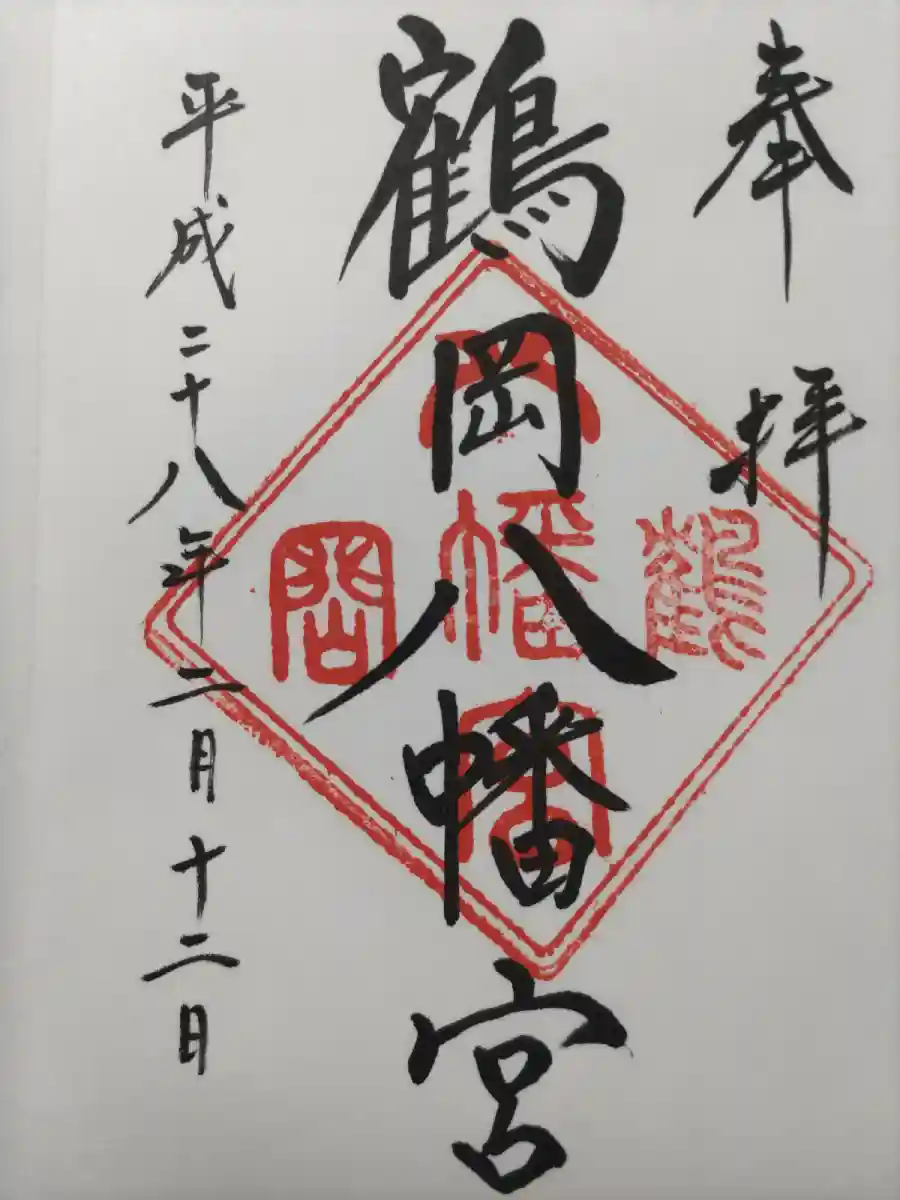 奉拝
鶴岡八幡宮
平成二十八年二月十二日
鶴
岡
八
幡
宮